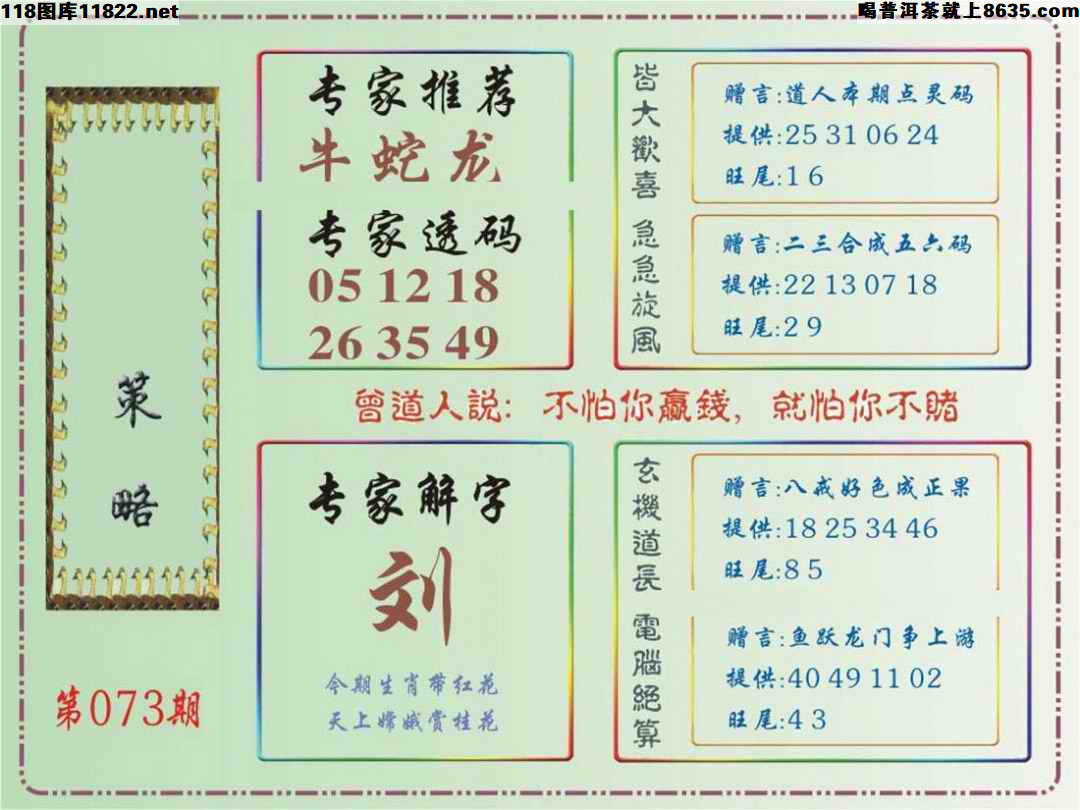 118图库11822.net
喝普洱茶就上8635.com
策略
第073期
专家推荐
牛蛇龙
专家透码
05 12 18
26 35 49
皆大歡喜
赠言:道人本期点灵码
提供:25 31 06 24
旺尾:1 6
急急旋風
赠言:二三合成五六码
提供:22 13 07 18
旺尾:2 9
曾道人説: 不怕你赢錢, 就怕你不賭
专家解字
刘
今期生肖带红花
天上嫦娥赏桂花
玄機道長
赠言:八戒好色成正果
提供:18 25 34 46
旺尾:8 5
電腦絕算
赠言:鱼跃龙门争上游
提供:40 49 11 02
旺尾:4 3